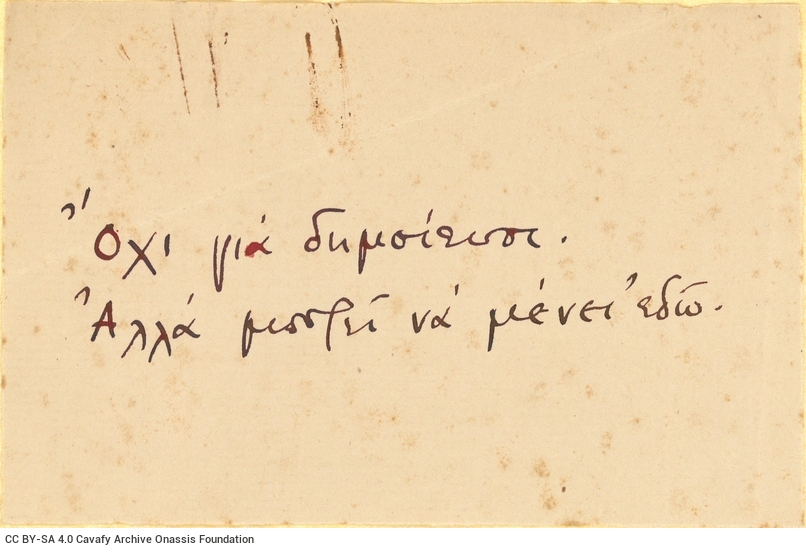 Ὄχι γιά δημοσίευσι.
Ἀλλά μπορεῖ νά μένει ἐδῶ.
CC BY-SA 4.0 Cavafy Archive Onassis Foundation